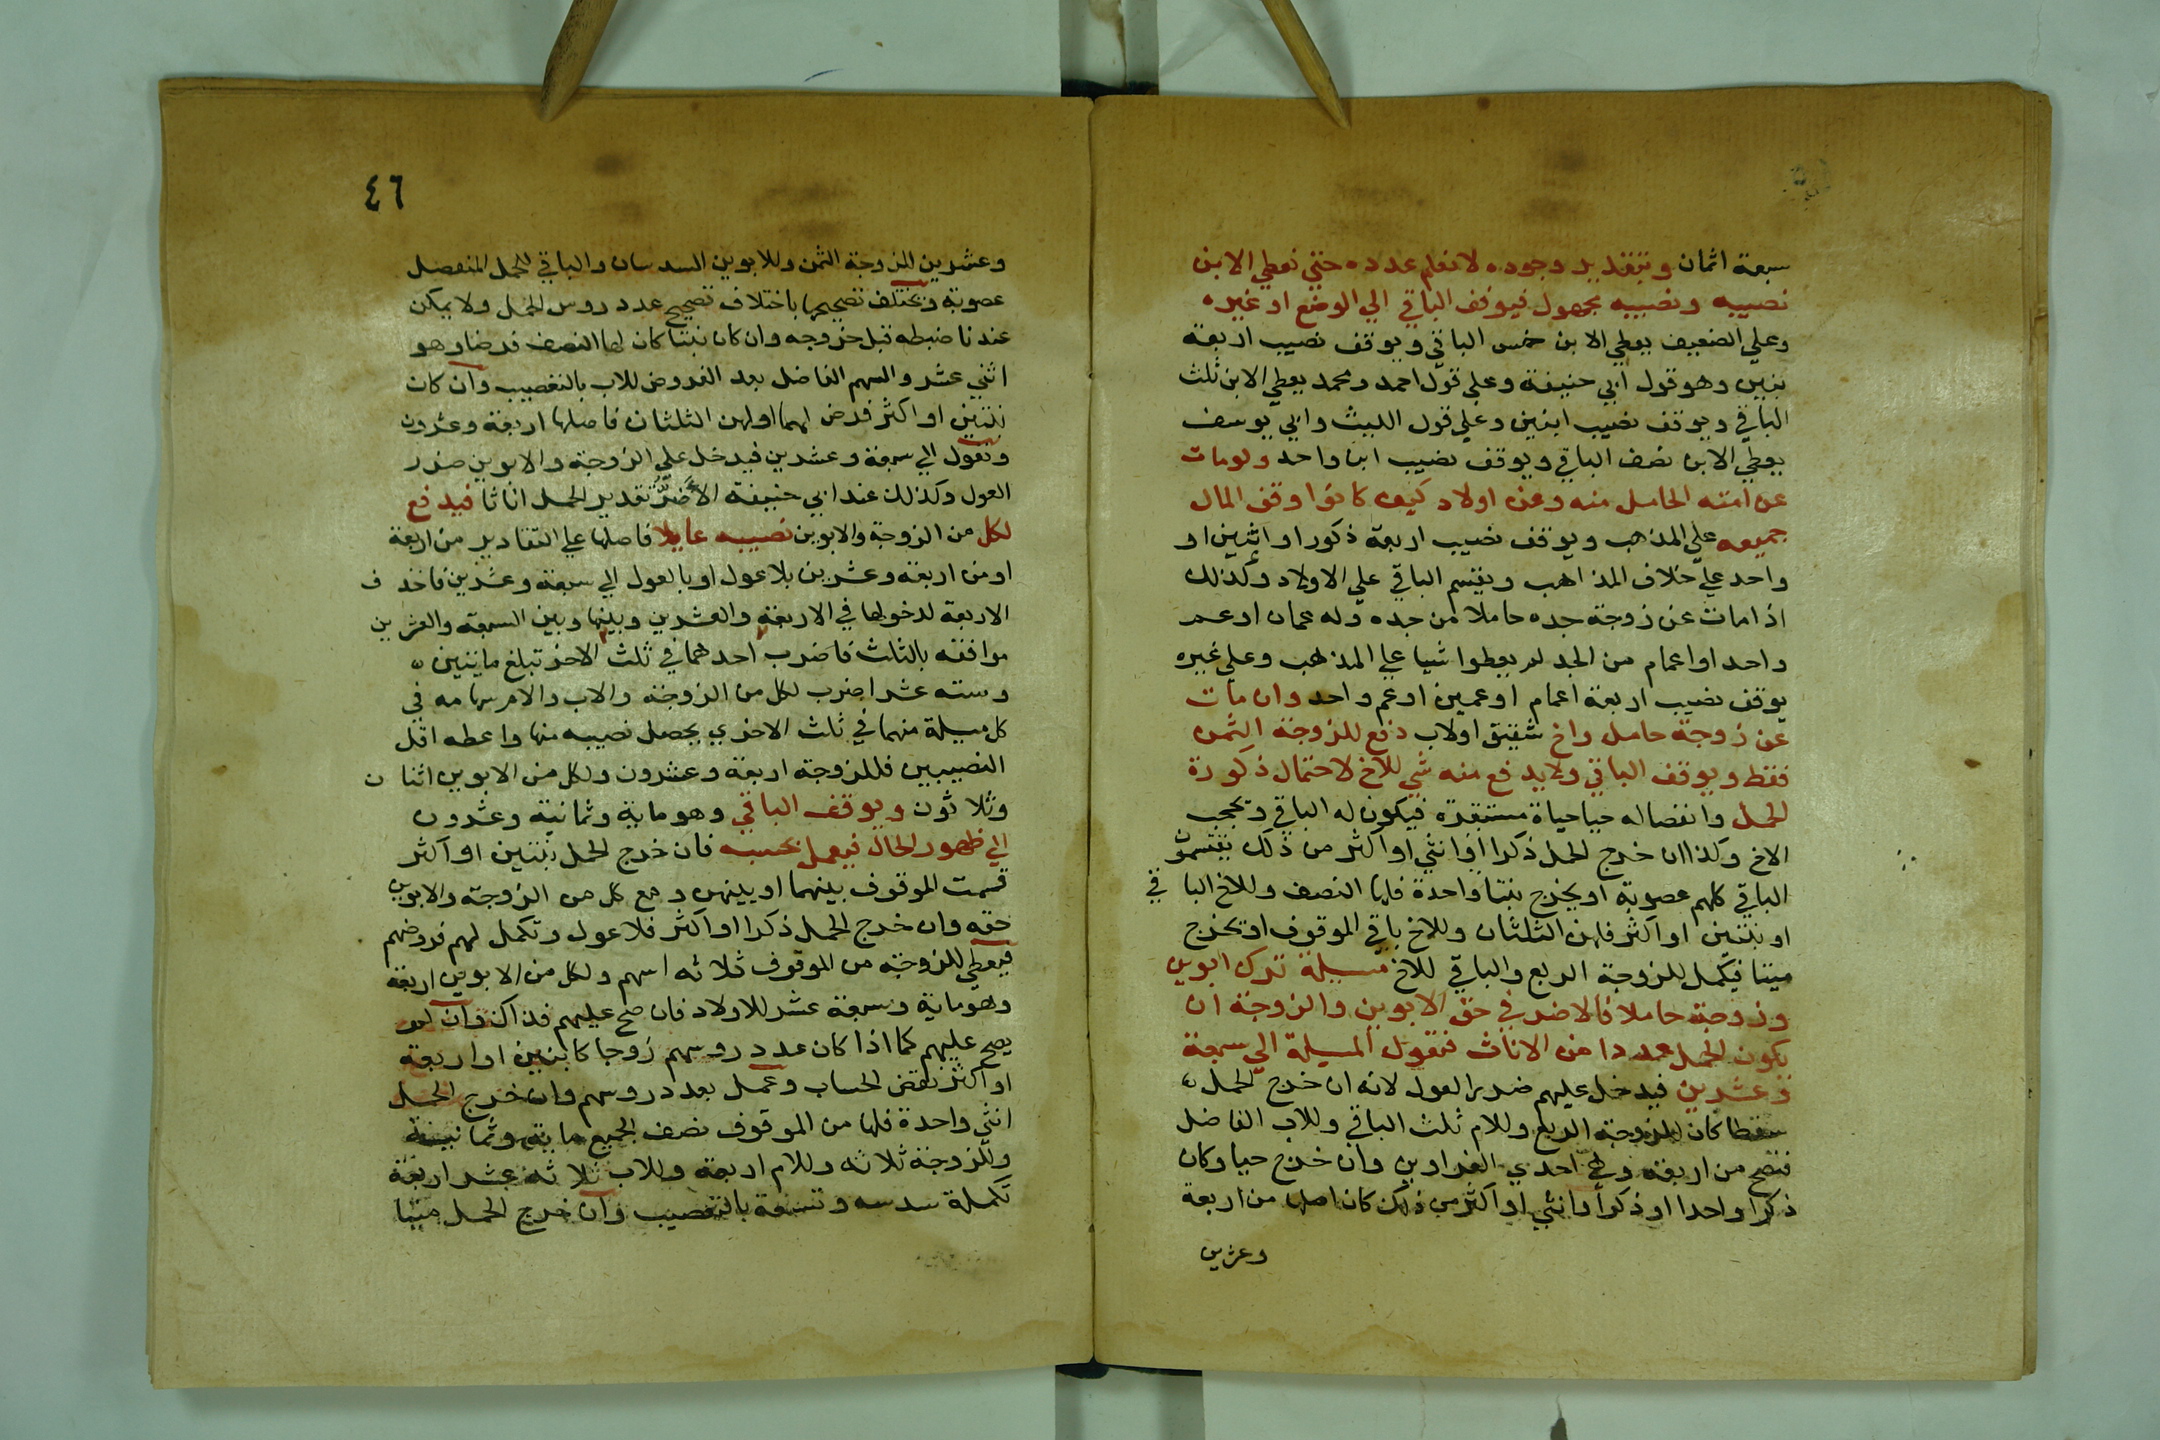 سبعة اثمان وبتقدير وجوده لا نعلم عدده حتي نعطي الابن
نصيبه ونصيبه مجهول فيوقف الباقي الي الوضع او غيره
وعلي الضعيف يعطي الابن خمس الباقي ويوقف نصيب اربعة
بنين وهو قول ابي حنيفة وعلي قول احمد ومحمد يعطي الابن ثلث
الباقي ويوقف نصيب ابنين وعلي قول الليث وابي يوسف
يعطي الابن نصف الباقي ويوقف نصيب ابن واحد ولو مات
عن امته الحامل منه وعن اولاد كيف كانوا وقف المال
جميعه علي المذهب ويوقف نصيب اربعة ذكور او اثنين او
واحد علي خلاف المذاهب ويقسم الباقي علي الاولاد وكذلك
اذا مات عن زوجة جده حاملا من جده وله عمان او عم
واحد او اعمام من الجد لم يعطوا شيا علي المذهب وعلي غيره
يوقف نصيب اربعة اعمام او عمين او عم واحد وان مات
عن زوجة حامل واخ شقيق او لاب دفع للزوجة الثمن
فقط ويوقف الباقي ولا يدفع منه شي للاخ لاحتمال ذكورة
الحمل وانفصاله حيا حياة مستقرة فيكون له الباقي ويحجب
الاخ وكذا ان خرج الحمل ذكرا او انثي او اكثر من ذلك يقتسمون
الباقي كلهم عصوبة او يخرج بنتا واحدة فلها النصف وللاخ الباقي
او بنتين او اكثر فلهن الثلثان وللاخ باقي الموقوف او يخرج
ميتا فيكمل للزوجة الربع والباقي للاخ مسيلة ترك ابوين
وزوجة حاملا فالاضر في حق الابوين والزوجة ان
يكون الحمل عددا من الاناث فتعول المسيلة الي سبعة
وعشرين فيدخل عليهم ضرر العول لانه ان خرج الحمل
سقطا كان للزوجة الربع وللام ثلث الباقي وللاب الفاضل
فتصح من اربعة وهي احدي الغراوين وان خرج حيا وكان
ذكرا واحدا او ذكرا وانثي او اكثر من ذلك كان اصلها من اربعة
وعشرين
٤٦
وعشرين للزوجة الثمن وللابوين السدسان والباقي للحمل المنفصل
عصوبة ويختلف تصحيحها باختلاف تصحيح عدد روس الحمل ولا يمكن
عندنا ضبطه قبل خروجه وان كان بنتا كان لها النصف فرضا وهو
اثني عشر والسهم الفاضل بعد الفروض للاب بالتعصيب وان كان
بنتين او اكثر فرض لهما او لهن الثلثان فاصلها اربعة وعشرون
وتعول الي سبعة وعشرين فيدخل علي الزوجة والابوين ضرر
العول وكذلك عند ابي حنيفة الاضر تقدير الحمل اناثا فيدفع
لكل من الزوجة والابوين نصيبه عايلا فاصلها علي التقادير من اربعة
او من اربعة وعشرين بلا عول او بالعول الي سبعة وعشرين فاحذف
الاربعة لدخولها في الاربعة والعشرين وبينها وبين السبعة والعشرين
موافقة بالثلث فاضرب احدهما في ثلث الاخر تبلغ مايتين
وستة عشر اضرب لكل من الزوجة والاب والام سهامه في
كل مسيلة منهما في ثلث الاخري يحصل نصيبه منها واعطه اقل
النصيبين فللزوجة اربعة وعشرون ولكل من الابوين اثنان
وثلاثون ويوقف الباقي وهو ماية وثمانية وعشرون
الي ظهور الحال فيعمل بحسبه فان خرج الحمل بنتين او اكثر
قسمت الموقوف بينهما او بينهن ومع كل من الزوجة والابوين
حقه وان خرج الحمل ذكرا او اكثر فلا عول وتكمل لهم فروضهم
فيعطي للزوجة من الموقوف ثلاثة اسهم ولكل من الابوين اربعة
وهو ماية وسبعة عشر للاولاد فان صح عليهم فذاك وان لم
يصح عليهم كما اذا كان عدد روسهم زوجا كابنين او اربعة
او اكثر نقض الحساب وعمل بعدد روسهم وان خرج الحمل
انثي واحدة فلها من الموقوف نصف الجميع ماية وثمانية
وللزوجة ثلاثة وللام اربعة وللاب ثلاثة عشر اربعة
تكملة سدسه وتسعة بالتعصيب وان خرج الحمل ميتا